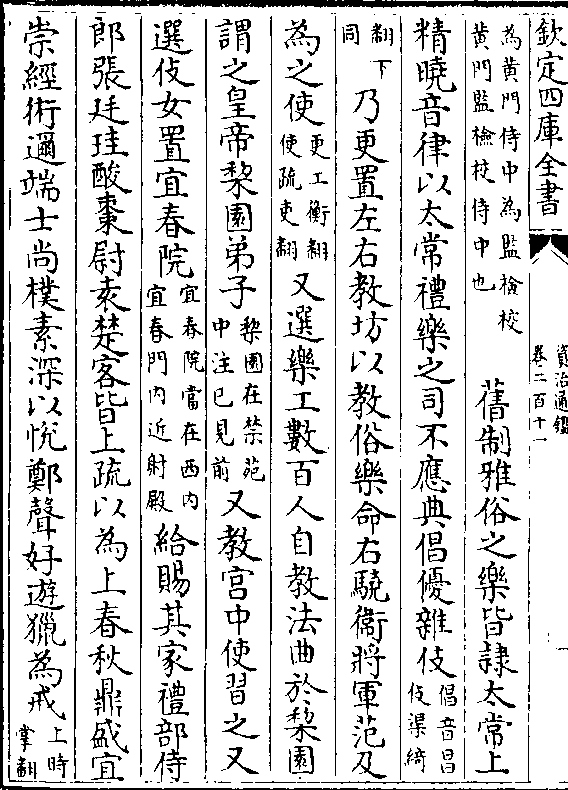 欽定四庫全書
資治通鑑
卷二百十一
為黄門侍中為監檢校
黄門監檢校侍中也
舊制雅俗之樂皆隷太常上
精曉音律以太常禮樂之司不應典倡優雜伎
倡音昌
伎渠綺
翻下
同
乃更置左右教坊以教俗樂命右驍衞將軍范及
為之使
更工衡翻
使疏吏翻
又選樂工數百人自教法曲於棃園
謂之皇帝棃園弟子
棃園在禁苑
中注已見前
又教宫中使習之又
選伎女置宜春院
宜春院當在西内
宜春門内近射殿
給賜其家禮部侍
郎張廷珪酸棗尉袁楚客皆上疏以為上春秋鼎盛宜
崇經術邇端士尚樸素深以悦鄭聲好遊獵為戒
上時
掌翻